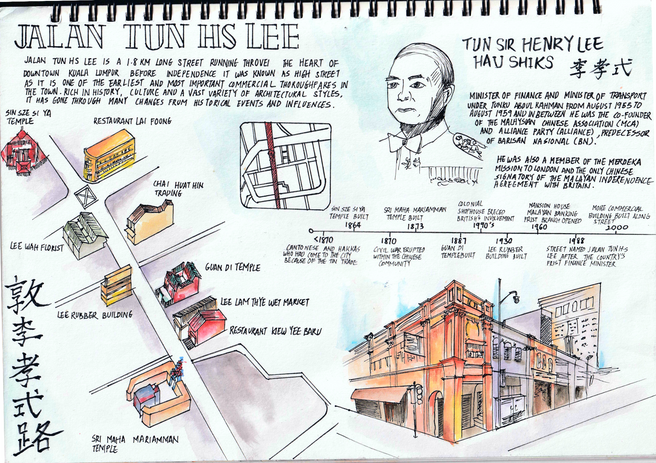 JALAN TUN HS LEE
JALAN TUN HS LEE IS A 1.8 KM LONG STREET RUNNING THROUGH THE HEART OF
DOWNTOWN KUALA LUMPUR BEFORE INDEPENDENCE IT WAS KNOWN AS HIGH STREET
AS IT IS ONE OF THE EARLIEST AND MOST IMPORTANT COMMERCIAL THOROUGHFARES IN
THE TOWN. RICH IN HISTORY, CULTURE AND A VAST VARIETY OF ARCHITECTURAL STYLES,
IT HAS GONE THROUGH MANY CHANGES FROM HISTORICAL EVENTS AND INFLUENCES.
TUN SIR HENRY LEE
HAU SHIKS 李孝式
MINISTER OF FINANCE AND MINISTER OF TRANSPORT
UNDER TUNKU ABDUL RAHMAN FROM AUGUST 1955 TO
AUGUST 1959 AND IN BETWEEN HE WAS THE CO-FOUNDER
OF THE MALAYSIAN CHINESE ASSOCIATION (MCA)
AND ALLIANCE PARTY (ALLIANCE), PREDECESSOR
OF BARISAN NASIONAL (BN).
HE WAS ALSO A MEMBER OF THE MERDEKA
MISSION TO LONDON AND THE ONLY CHINESE
SIGNATORY OF THE MALAYAN INDEPENDENCE
AGREEMENT WITH BRITAIN.
SIN SZE SI YA
TEMPLE
RESTAURANT LAI FOONG
CHAI HUAT HIN
TRADING
LEE WAH FLORIST
GUAN DI TEMPLE
LEE RUBBER BUILDING
LEE LAM THYE WET MARKET
RESTAURANT KIEW YEE BARU
SRI MAHA MARIAMMAN
TEMPLE
敦李孝式路
SIN SZE SI YA
TEMPLE BUILT
1864
SRI MAHA MARIAMMAN
TEMPLE BUILT
1873
COLONIAL
SHOPHOUSE
BRITISH'S INVOLVEMENT
1970's
MANSION HOUSE
MALAYAN BANKING
FIRST BRANCH OPENED
1960
MORE COMMERCIAL
BUILDING BUILT ALONG
STREET
2000
<1870
CANTONESE AND HAKKAS
WHO HAD COME TO THE CITY
BECAUSE OF THE TIN TRADE
1870
CIVIL WAR ERUPTED
WITHIN THE CHINESE
COMMUNITY
1887
GUAN DI
TEMPLE BUILT
1930
LEE RUBBER
BUILDING BUILT
1988
STREET NAMED JALAN TUN HS
LEE AFTER THE COUNTRY'S
FIRST FINANCE MINISTER